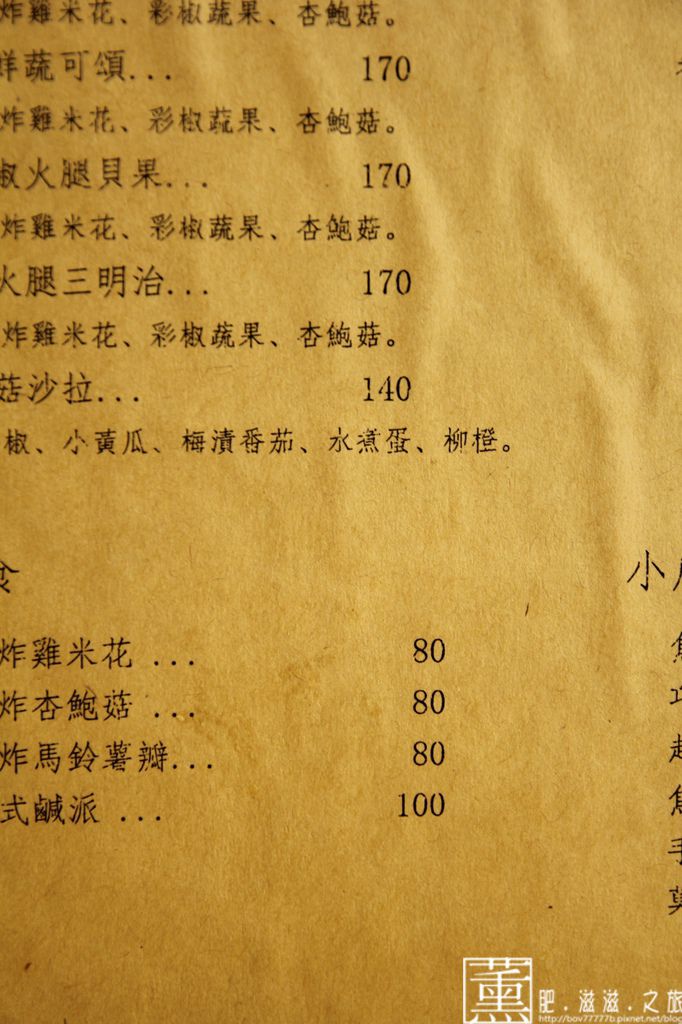 炸雞米花、彩椒蔬果、杏鮑菇。
鮮蔬可頌... 170
炸雞米花、彩椒蔬果、杏鮑菇。
椒火腿貝果... 170
炸雞米花、彩椒蔬果、杏鮑菇。
火腿三明治... 170
炸雞米花、彩椒蔬果、杏鮑菇。
菇沙拉... 140
椒、小黃瓜、梅漬番茄、水煮蛋、柳橙。
食
炸雞米花 ... 80
炸杏鮑菇 ... 80
炸馬鈴薯瓣... 80
式鹹派 ... 100
小
手
薰
肥.滋滋.之旅
http://bov77777b.pixnet.net/blog